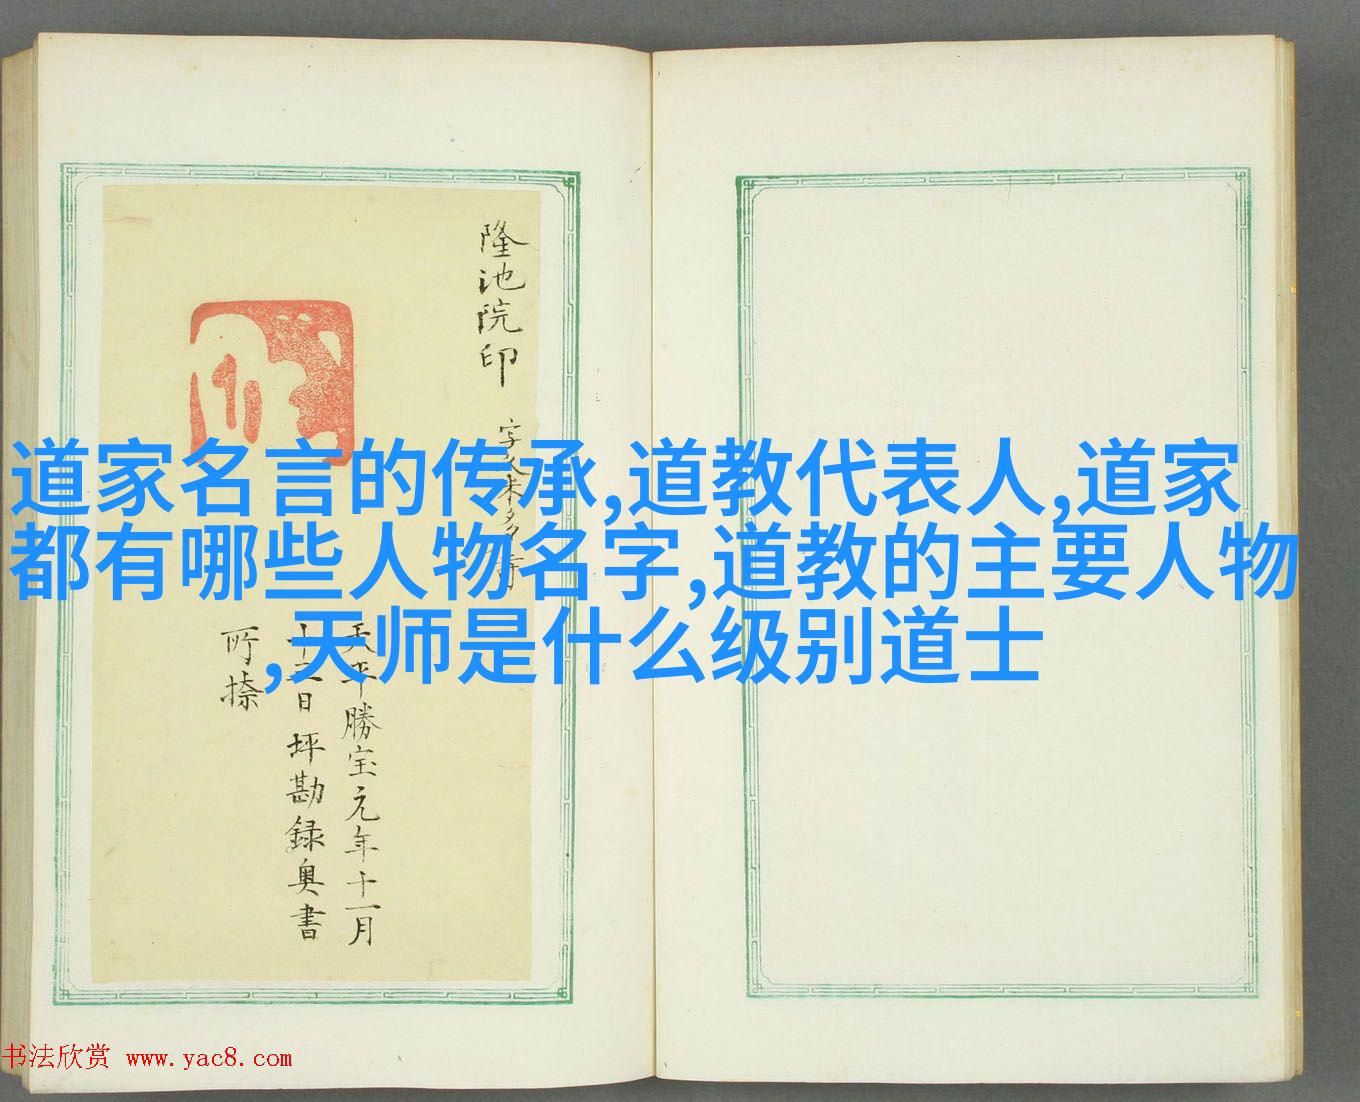 道家名言的传承,道教代表人,道家
都有哪些人物名字,道教的主要人物
,天师是什么级别道士
隆池院印
字
天平勝宝元年十一月
日 坪勘録奥書
所捺
书法欣赏 www.yac8.com